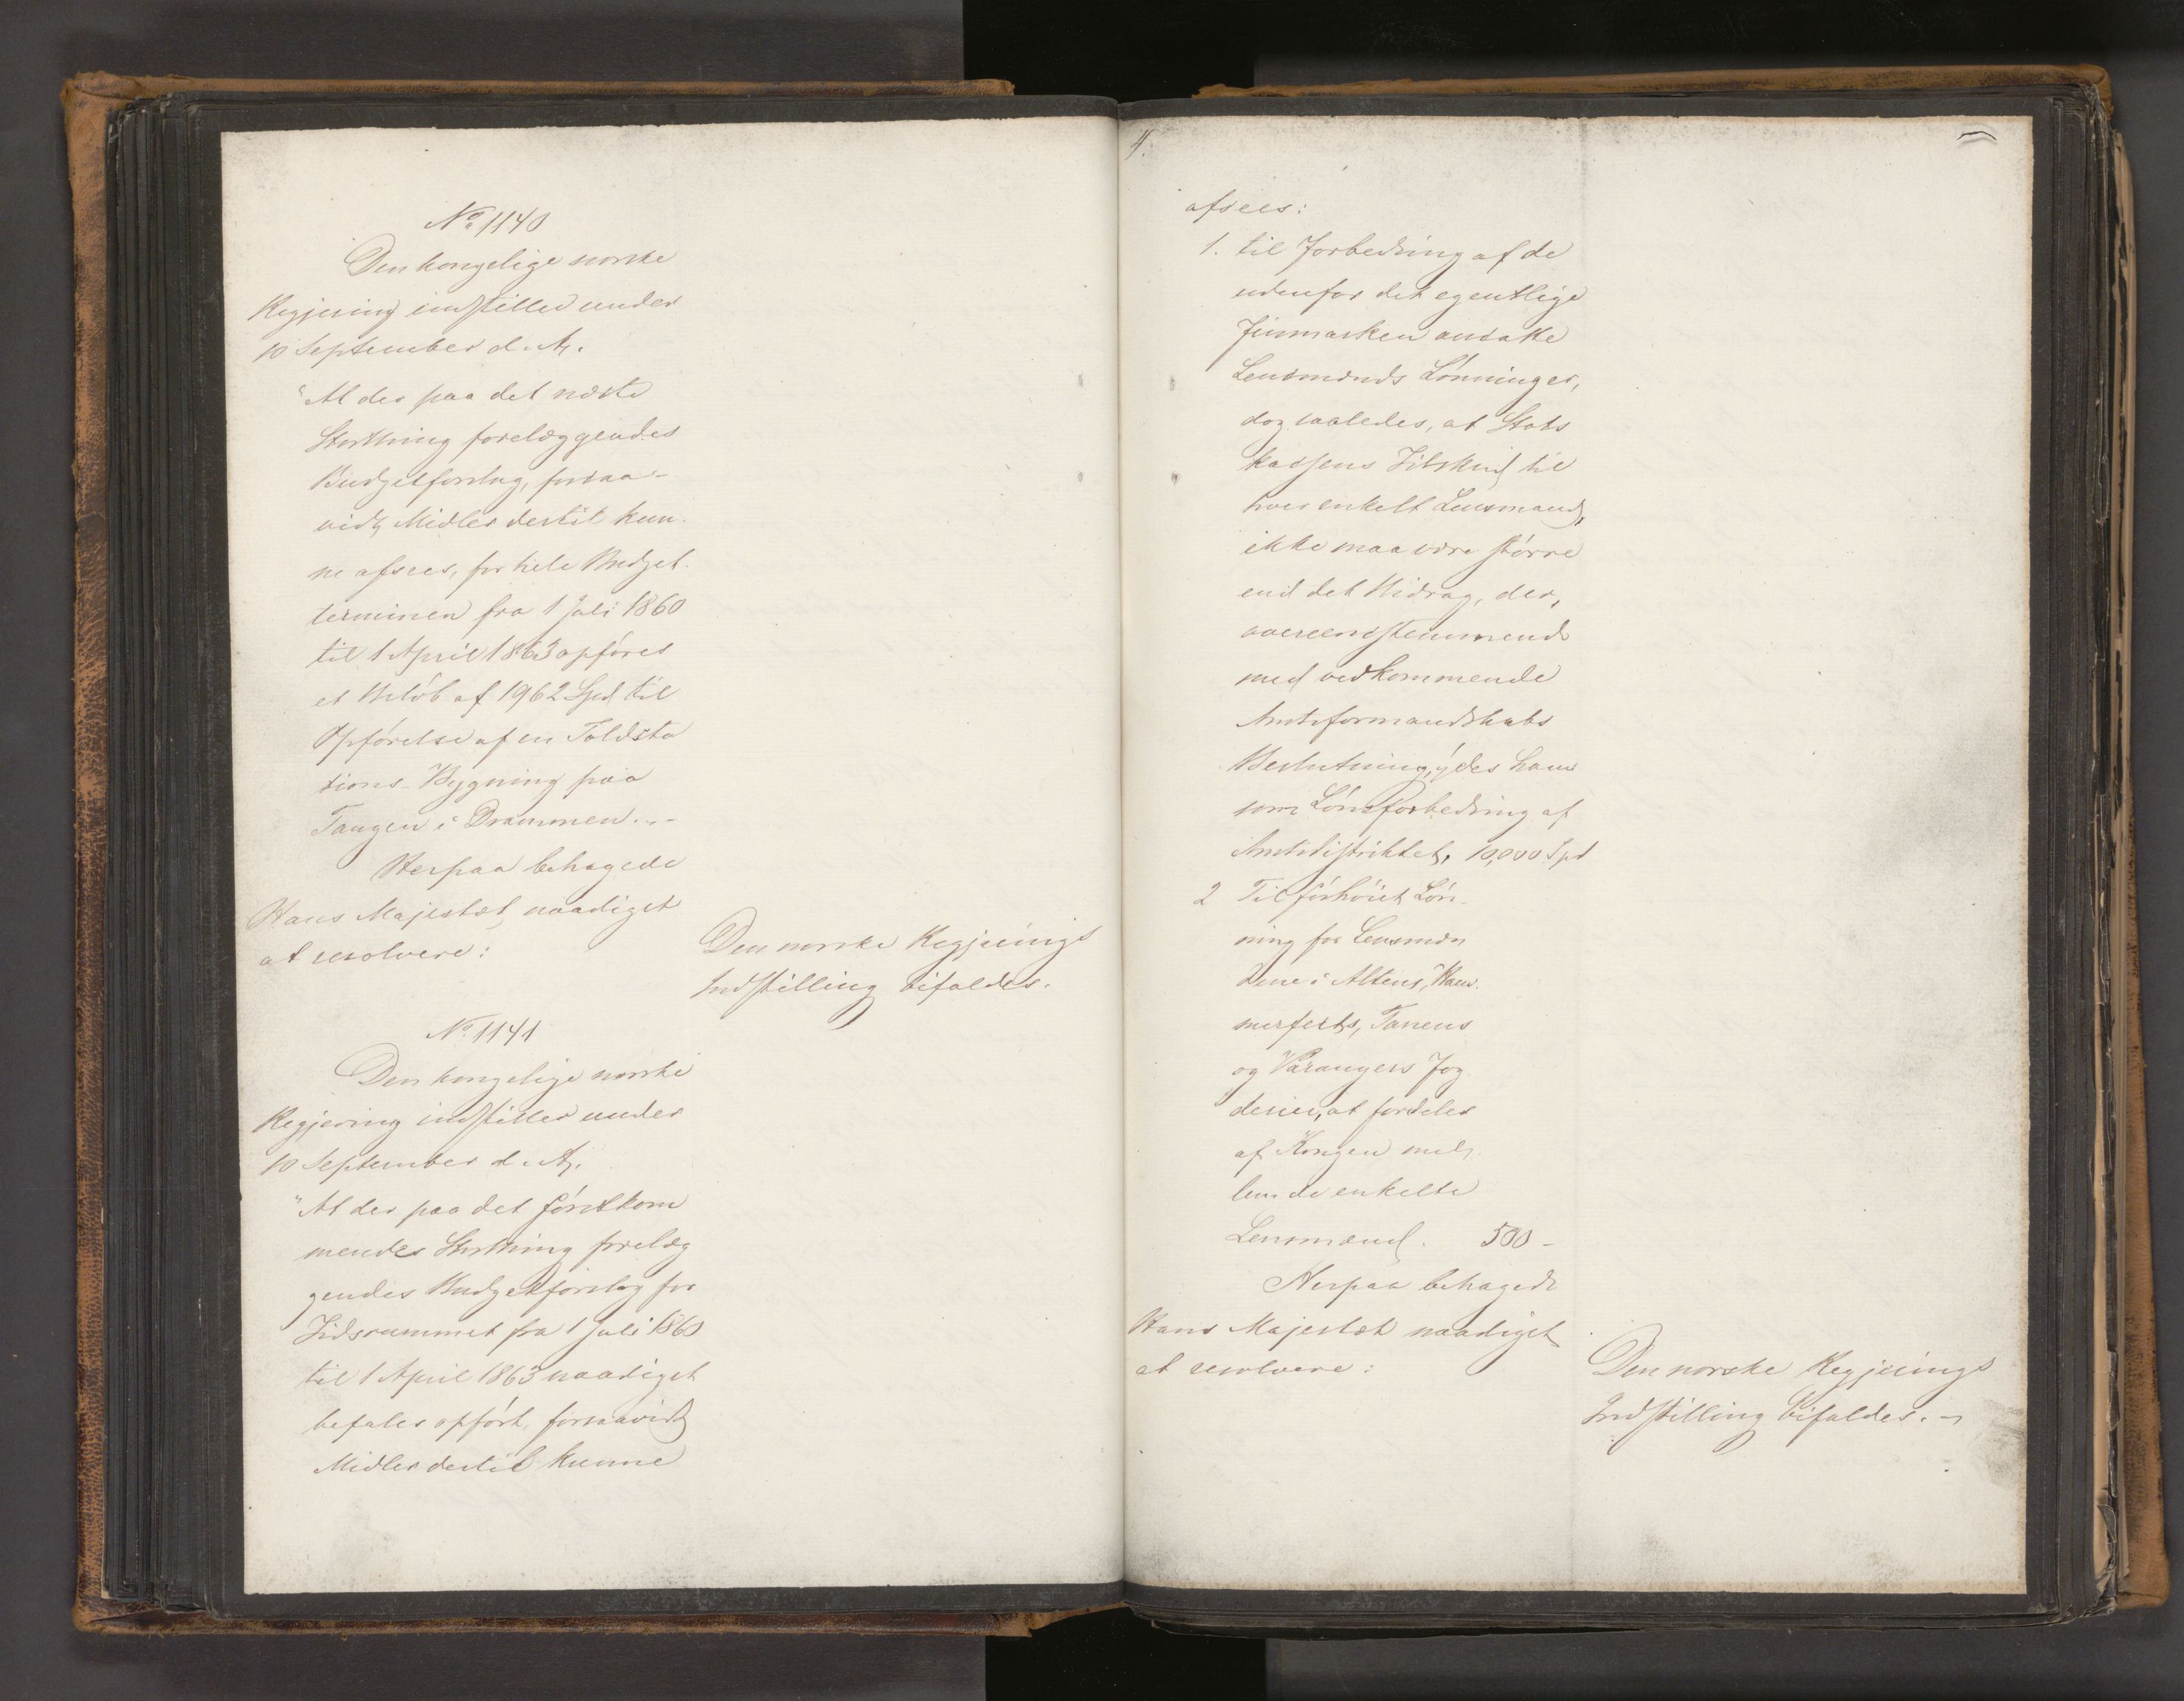 No 1140
Den kongelige norske
Regjering indstiller under
10 September d. A.
"At der paa det næste
Storthing forelæggendes
Budgetforslag, forsaa-
vidt Midler dertil kun-
ne afsees, for hele Budget-
terminen fra 1 Juli 1860
til 1 April 1863 opføres
et Beløb af 1962 Spd til
Opførelse af en Toldsta
tions-Bygning paa
Tangen i Drammen."-
Herpaa behagede
Hans Majestæt naadigst
at resolvere:
Den norske Regjerings
Indstilling bifaldes.
No 1141
Den kongelige norske
Regjering indstiller under
10 September d. A.
"At der paa det førstkom
mendes Storthing forelæg
gendes Budgetforslag for
Tidsrummet fra 1 Juli 1860
til 1 April 1863 naadigst
befales opført, forsaavidt
Midler dertil kunne
4.
afsees:
1. til Forbedring af de
udenfor det egentlige
Finmarken ansatte
Lensmænds Lønninger,
dog saaledes, at Stats
kassens Tilskud til
hver enkelt Lensmand,
ikke maa være større
end det Bidrag, der,
overeensstemmende
med vedkommende
Amtsformandskabs
Beslutning, ydes ham
som Lønsforbedring af
Amtsdistriktet, 10,000 Spd
2 Til forhøiet Løn-
ning for Lensmæn
dene i Altens, Ham-
merfests, Tanens
og Varangers Fog-
derier, at fordeles
af Kongen mel-
lem de enkelte
Lensmænd. 500 -
Herpaa behagede
Hans Majestæt naadigst
at resolvere:
Den norske Regjerings
Indstilling bifaldes. -